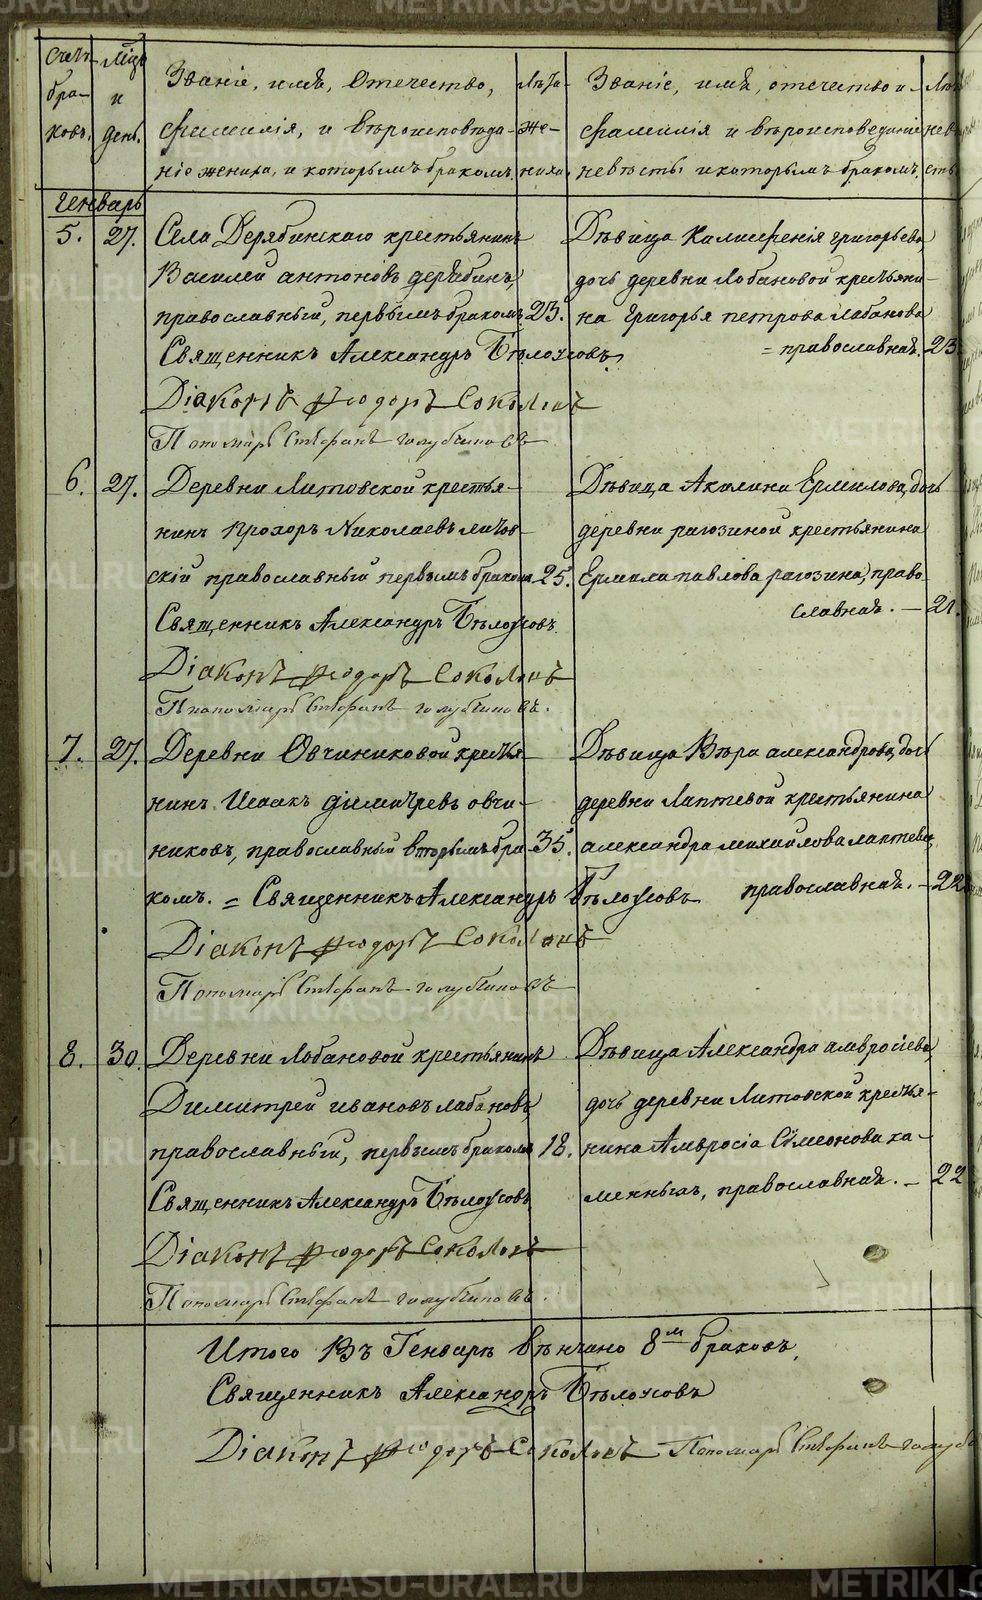 METRIKI.GASO-URAL.RU
Счетъ браковъ.
Мѣсяцъ и день.
Званіе, имя, отечество, фамилія, и вѣроисповѣданіе жениха, и которымъ бракомъ.
Лѣта жениха.
Званіе, имя, отечество и фамилія и вѣроисповеданіе невѣсты и которымъ бракомъ.
Генварь
5. 27. Села Дерябинскаго крестьянинъ
Василей антоновъ дерябинъ,
православный, первымъ бракомъ. 23.
Священникъ Александръ Бѣлоусовъ,
Діаконъ Ѳеодоръ Соколовъ
Пономарь Стефанъ голубчиковъ
Дѣвица Калисфенія григорьева
дочь деревни Лобановой крестьяни-
на Григорья петрова лабанова
= православная. 23.
6. 27. Деревни Литовской крестья-
нинъ Прохоръ Николаевъ литов-
скій православный первымъ бракомъ 25.
Священникъ Александръ Бѣлоусовъ.
Діаконъ Ѳеодоръ Соколовъ
Пономарь Стефанъ голубчиковъ.
Дѣвица Акилина Ермилова, дочь
деревни рагозиной крестьянина
Ермила павлова рагозина, право-
славная. — 21.
7. 27. Деревни Овчиниковой крестья-
нинъ Исаакъ димитревъ овчи-
никовъ, православный вторымъ бра- 35.
комъ. = Священникъ Александръ Бѣлоусовъ
Діаконъ Ѳеодоръ Соколовъ
Пономарь Стефанъ голубчиковъ
Дѣвица Вѣра александрова, дочь
деревни Лаптевой крестьянина
александра михайлова лаптева,
православная. — 22
8. 30. Деревни Лобановой крестьянинъ
Димитрей ивановъ лабановъ,
православный, первымъ бракомъ 18.
Священникъ Александръ Бѣлоусовъ
Діаконъ Ѳеодоръ Соколовъ
Пономарь Стефанъ голубчиковъ.
Дѣвица Александра амвросіева,
дочь деревни Литовской крестья-
нина Амвросіа Сімеонова ха-
менныхъ, православная. — 22
Итого Въ Генварѣ вѣнчано 8м браковъ,
Священникъ Александръ Бѣлоусовъ
Діаконъ Ѳеодоръ Соколовъ Пономарь Стефанъ
METRIKI.GASO-URAL.RU